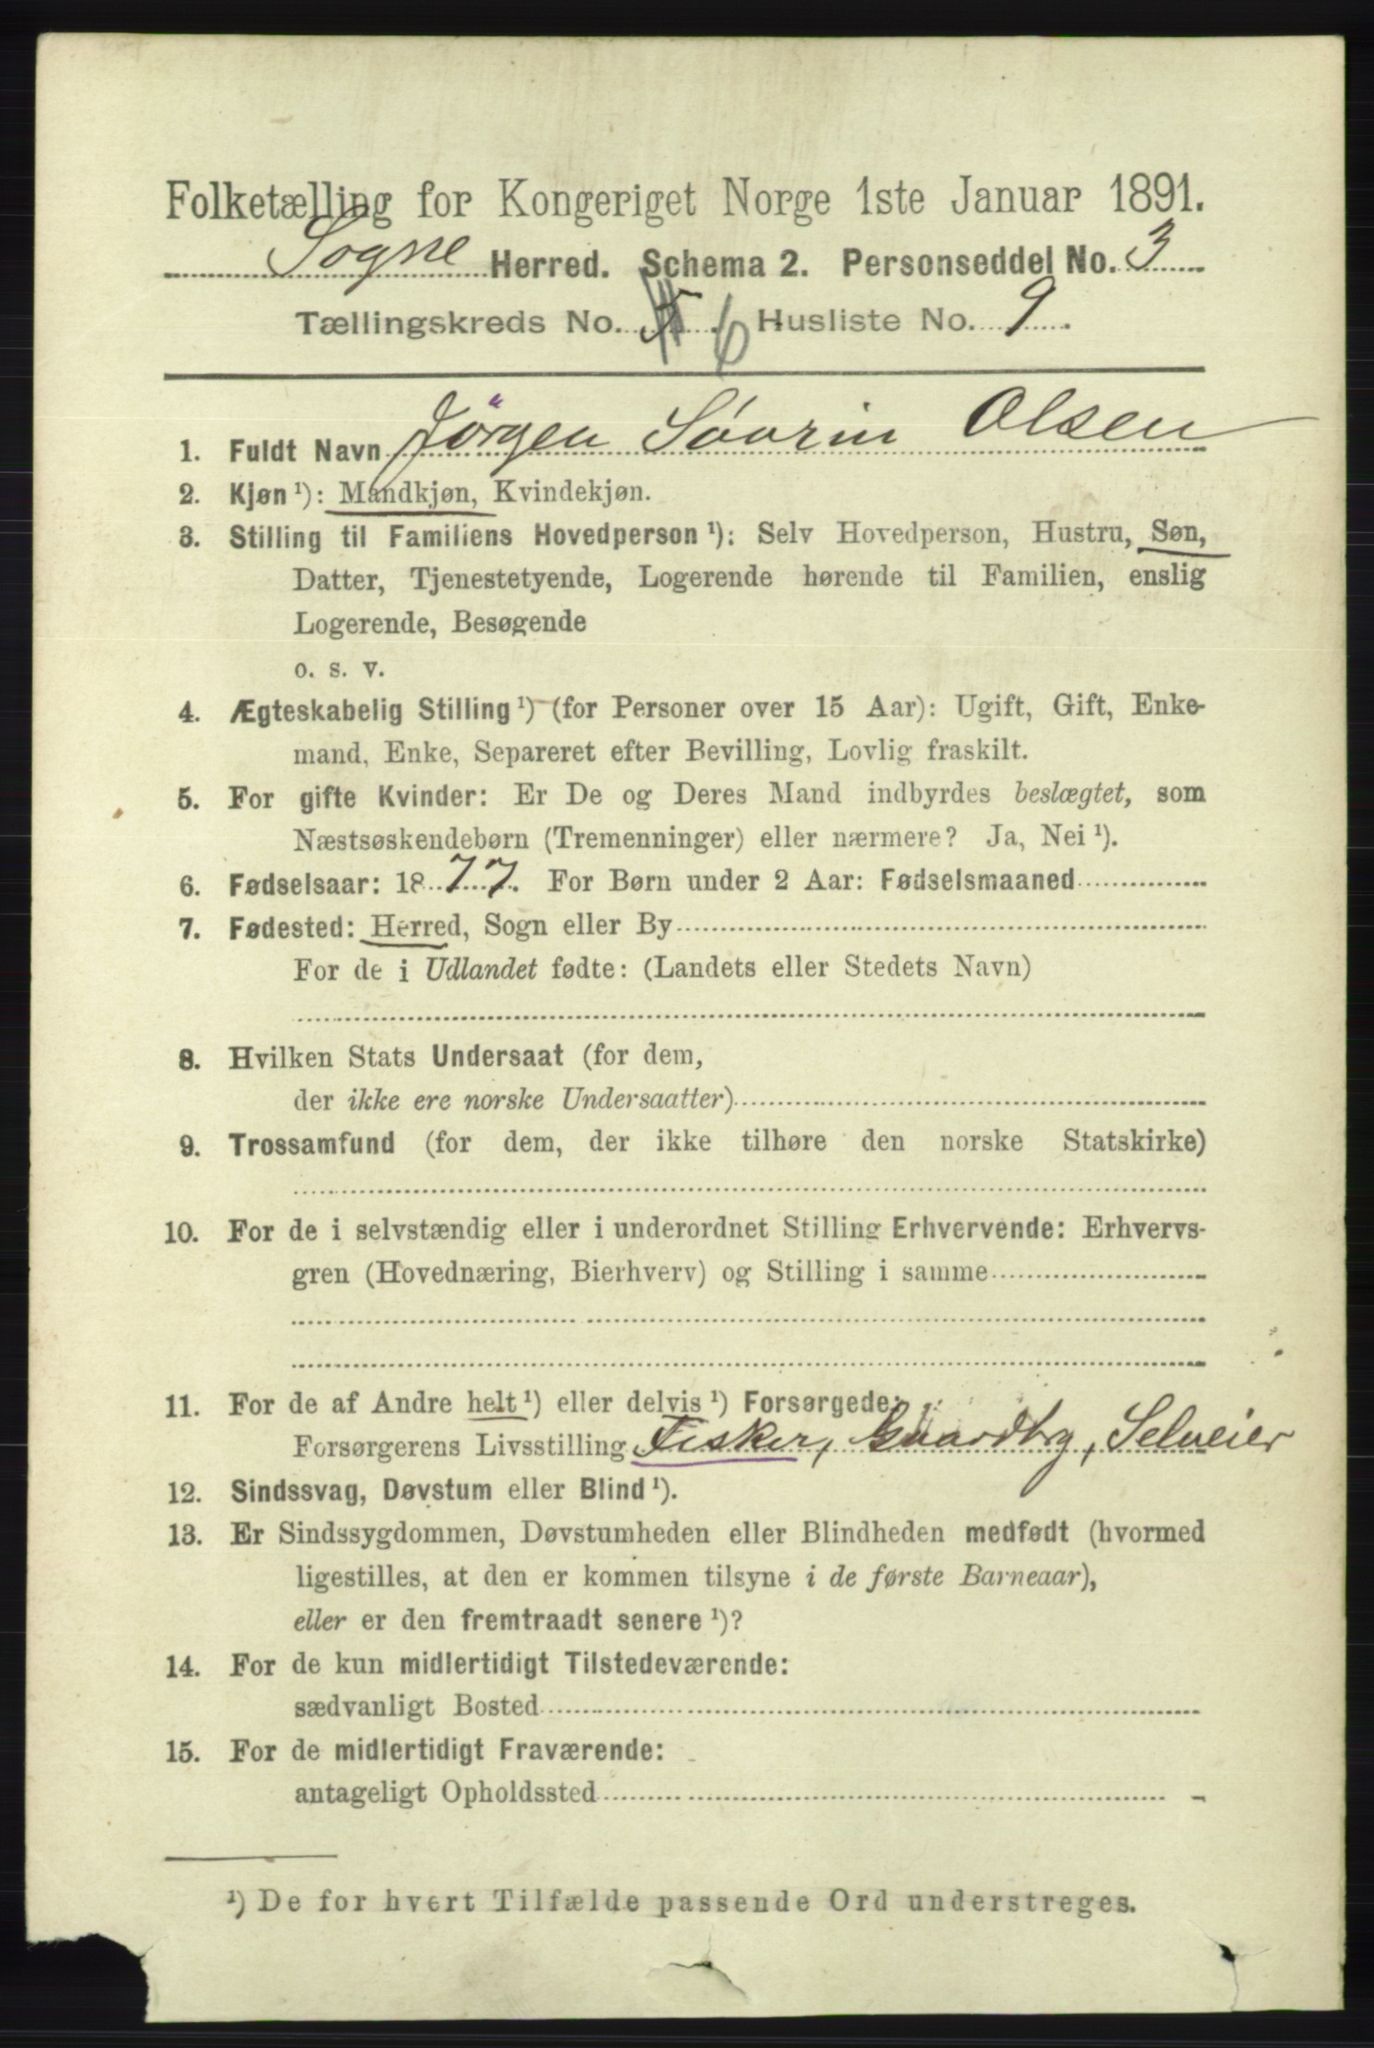 Folketælling for Kongeriget Norge 1ste Januar 1891.
Sogne Herred. Schema 2. Personseddel No. 3
Tællingskreds No. 6 Husliste No. 9.
1. Fuldt Navn Jörgen Sövrin Olsen
2. Kjøn ¹): Mandkjøn, Kvindekjøn.
3. Stilling til Familiens Hovedperson ¹): Selv Hovedperson, Hustru, Søn,
Datter, Tjenestetyende, Logerende hørende til Familien, enslig
Logerende, Besøgende
o. s. v.
4. Ægteskabelig Stilling ¹) (for Personer over 15 Aar): Ugift, Gift, Enke-
mand, Enke, Separeret efter Bevilling, Lovlig fraskilt.
5. For gifte Kvinder: Er De og Deres Mand indbyrdes beslægtet, som
Næstsøskendebørn (Tremenninger) eller nærmere? Ja, Nei ¹).
6. Fødselsaar: 1877. For Børn under 2 Aar: Fødselsmaaned
7. Fødested: Herred, Sogn eller By
For de i Udlandet fødte: (Landets eller Stedets Navn)
8. Hvilken Stats Undersaat (for dem,
der ikke ere norske Undersaatter)
9. Trossamfund (for dem, der ikke tilhøre den norske Statskirke)
10. For de i selvstændig eller i underordnet Stilling Erhvervende: Erhvervs-
gren (Hovednæring, Bierhverv) og Stilling i samme
11. For de af Andre helt ¹) eller delvis ¹) Forsørgede:
Forsørgerens Livsstilling Fisker, Gaardbrg, Selveier
12. Sindssvag, Døvstum eller Blind ¹).
13. Er Sindssygdommen, Døvstumheden eller Blindheden medfødt (hvormed
ligestilles, at den er kommen tilsyne i de første Barneaar),
eller er den fremtraadt senere ¹)?
14. For de kun midlertidigt Tilstedeværende:
sædvanligt Bosted
15. For de midlertidigt Fraværende:
antageligt Opholdssted
¹) De for hvert Tilfælde passende Ord understreges.